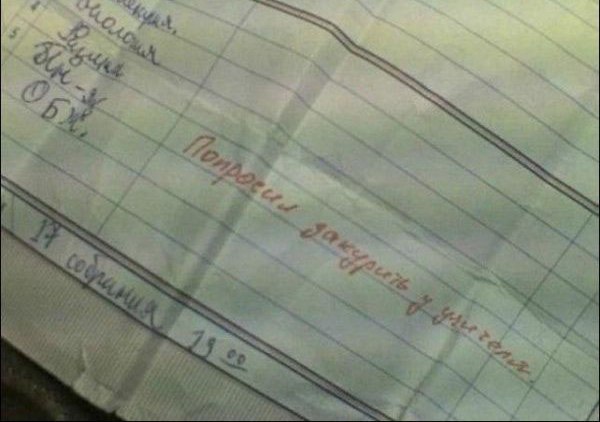 4
биология
5
Физика
Ин-яз
ОБЖ.
Попросил закурить у учителя.
17 собрания 19 00